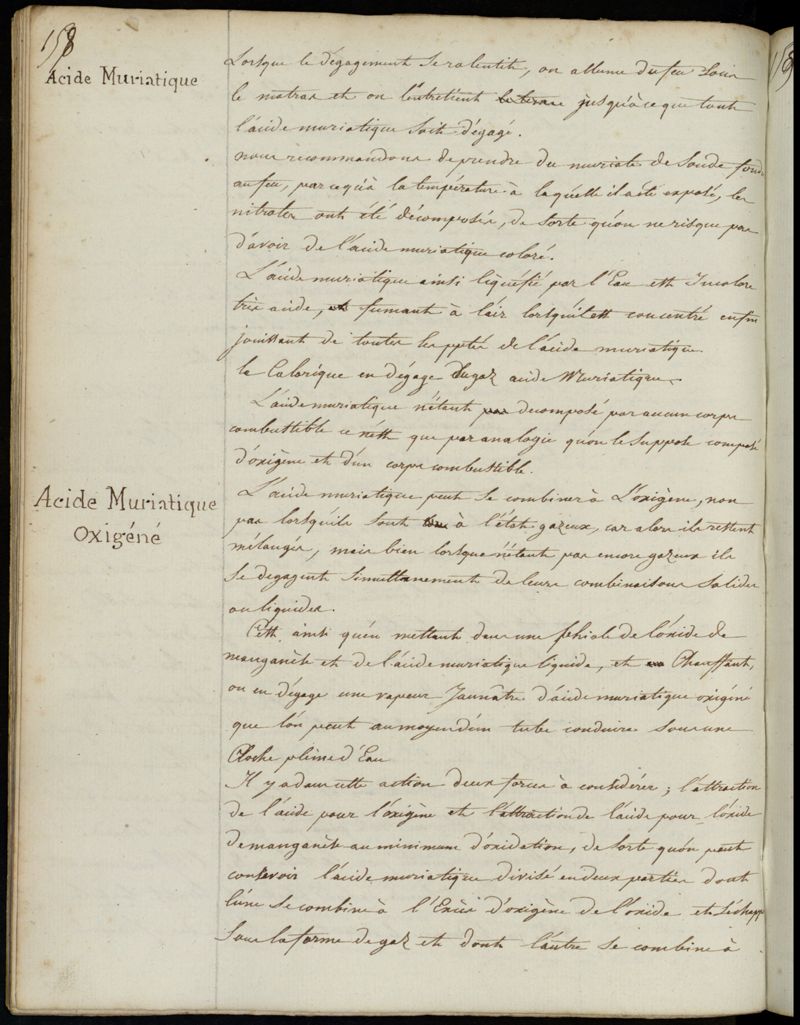 158
Acide Muriatique
Lorsque le dégagement se ralentit, on allume du feu sous
le matras et on l'entretient jusqu'à ce que toute
l'acide muriatique soit dégagé.
nous recommandons de prendre du muriate de Soude fondu
au feu, parcequ'à la température à laquelle il a été exposé, les
nitrates ont été décomposés, de sorte qu'on ne risque pas
d'avoir de l'acide muriatique coloré.
L'acide muriatique ainsi liquéfié par l'Eau est Incolore
très acide, et fumant à l'air lorsqu'il est concentré enfin
jouissant de toutes les pptés de l'acide muriatique.
le Calorique en dégage du gaz acide Muriatique.
L'acide muriatique n'étant pas decomposé par aucun corps
combustible ce n'est que par analogie qu'on le suppose composé
d'oxigène et d'un corps combustible.
Acide Muriatique
Oxigéné
L'acide muriatique peut se combiner à L'oxigène, non
pas lorsqu'ils sont à l'état gazeux, car alors ils restent
mélangés, mais bien lorsque n'étant pas encore gazeux ils
se degagent simultanement de leurs combinaisons solides
ou liquides.
C'est ainsi qu'en mettant dans une phiole de l'oxide de
manganèse et de l'acide muriatique liquide, et Chauffant,
on en dégage une vapeur Jaunâtre d'acide muriatique oxigéné
que l'on peut au moyen d'un tube conduire sous une
Cloche pleine d'Eau
Il y a dans cette action deux forces à considérer; l'attraction
de l'acide pour l'oxigène et l'attraction de l'acide pour l'oxide
de manganèse au minimum d'oxidation, de sorte qu'on peut
consevoir l'acide muriatique divisé en deux parties dont
l'une se combine à l'Excès d'oxigène de l'oxide et s'échappe
sous la forme de gaz et dont l'autre se combine à